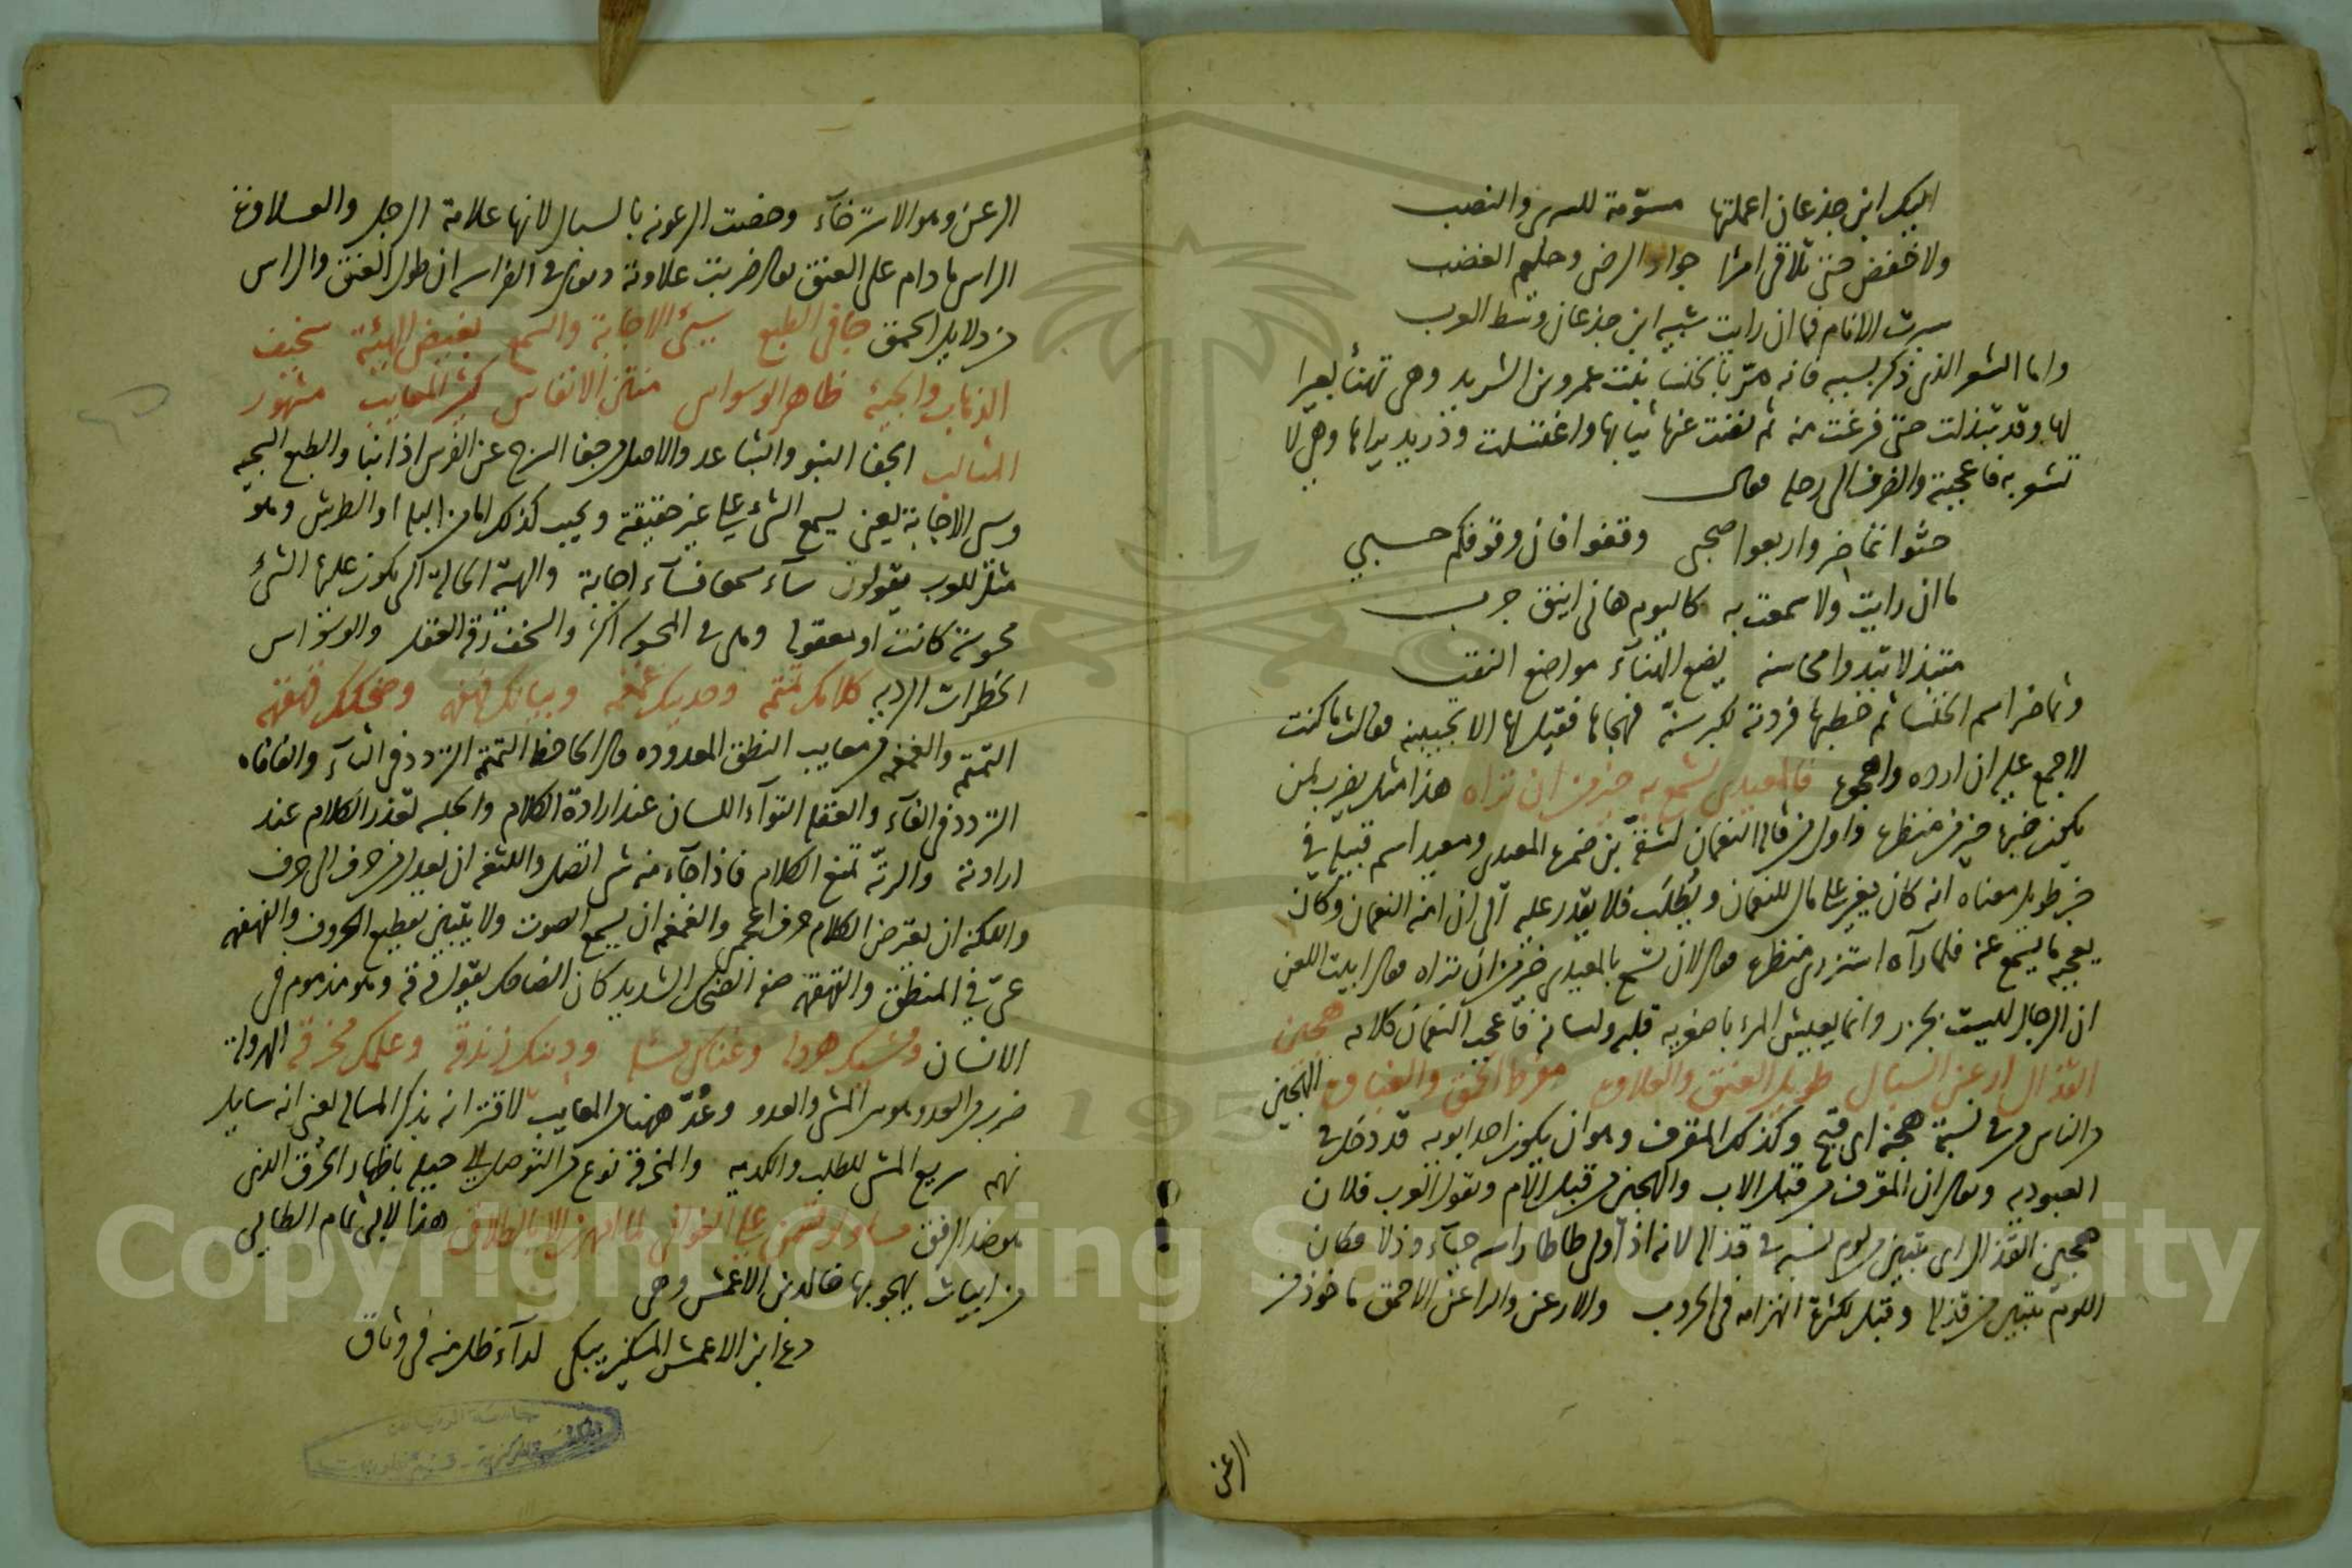 اليك ابن جذعان اعملتها مسوّمة للسرى والنصب
ولا خفض حتى تلاقى امرًا جواد الرضى وحليم الغضب
سبرت الانام فما ان رايت شبيه ابن جذعان وسط العرب
واما الشعر الذى ذكر بسببه فانه مرّ بالخنسا بنت عمرو بن الشريد وهى تهنأ بعيرا
لها وقد تبذلت حتى فرغت منه ثم نضت عنها ثيابها واغتسلت ودريد يراها وهى لا
تشعر به فاعجبته وانصرف الى رحله وقال
حيّوا تماضر واربعوا صحبى وقفوا فان وقوفكم حسبي
ما ان رايت ولا سمعت به كاليوم هانى اينق جرب
متبذلا تبدوا محاسنه يضع الهنآء مواضع النقب
وتماضر اسم الخنسا ثم خطبها فردته لكبر سنّه فهجاها فقيل لها الا تجيبينه فقالت ما كنت
لاجمع عليه ان ارده واهجوه فالمعيدى تسمع به خير من ان تراه هذا مثل يضرب لمن
يكون خبره خير من منظره واول من قاله النعمان لشقّة بن ضمره المعيدى ومعيد اسم قبيله فى
خبر طويل معناه انه كان يغير على مال للنعمان ويُطلَب فلا يقدر عليه الى ان امنه النعمان وكان
يعجبه ما يسمع عنه فلما رآه استزرى منظره فقال لان تسمع بالمعيدى خير من ان تراه فقال ابيت اللعن
ان الرجال ليست بجزر وانما يعيش المرء باصغريه قلبه ولسانه فاعجب النعمان كلامه هجين
القذال ارعن السبال طويل العنق والعلاوه مفرط الحمق والغباوه الهجين
من الناس من فى نسبته هجنة اى قبح وكذلك المقرف وهو ان يكون احد ابويه قد دخل فى
العبوديه ويقال ان المقرف من قبل الاب والهجين من قبل الام وتقول العرب فلان
هجين القذال اى يتبين لوم نسبه فى قذاله لانه اذا ولى طاطا راسه حيآء وذلا فكان
اللوم يتبين من قذاله وقيل لكثرة انهزامه فى الحروب والارعن والراعن الاحمق ماخوذ من
الرعن
الرعن وهو الاسترخآء وخصت الرعونه بالسبال لانها علامة الرجل والعلاوة
الراس ما دام على العنق يقال ضربت علاوته ويقال فى الفراسه ان طول العنق والراس
من دلايل الحمق جافى الطبع سيئ الاجابة والسمع بغيض الهيئة سخيف
الذهاب والجيئة ظاهر الوسواس منتن الانفاس كثير المعايب مشهور
المثالب الجفا النبو والتباعد والاصل من جفا السرج عن الفرس اذا نبا والطبع السجيه
وسى الاجابة يعنى يسمع الشىء على غير حقيقة ويجيب كذلك اما من البله او الطرش وهو
مثل للعرب يقولون سآء سمعا فسآء اجابة والهيئة الحالة التى يكون عليها الشىء
محسوسة كانت او معقوله وهى فى المحسوسه اكثر والسخف رقة العقل والوسواس
الخطرات الرديه كلامك تمتمه وحديثك غمغمه وبيانك فهفهه وضحكك قهقهه
التمتمه والغمغمه من معايب النطق المعدوده قال الجاحظ التمتمة التردد فى التآء والفافاه
التردد فى الفآء والعقله التوآء اللسان عند ارادة الكلام والحبسه تعذر الكلام عند
ارادته والرتّه تمنع الكلام فاذا جآء منه شى اتصل واللثغه ان يعدل من حرف الى حرف
واللكنه ان تعترض الكلام حرف اعجمى والغمغمه ان يسمع الصوت ولا يتبين تقطيع الحروف والفهفهه
عىّ فى المنطق والقهقهه صفة الضحك الشديد كان الضاحك يقول قه قه وهو مذموم فى
الانسان ومشيك هرولة وغناك مسله ودينك زندقه وعلمك مخرقه الهرولة
ضرب من العدو وهو بين المشى والعدو وعُدّ ههنا من المعايب لاقترانه بذكر المسالة يعنى انه سايل
نهم سريع المشى للطلب والكديه والمخرقة نوع من التوصل الى حيله باظهار الخرق الذى
هو ضد الرفق مساو لو قسمن على الغوانى لما امهرن الا بالطلاق هذا لابى تمام الطايى
من ابيات يهجو بها خالد بن الاعمش وهى
دع ابن الاعمش المسكين يبكى لدآء ظل منه فى وثاق